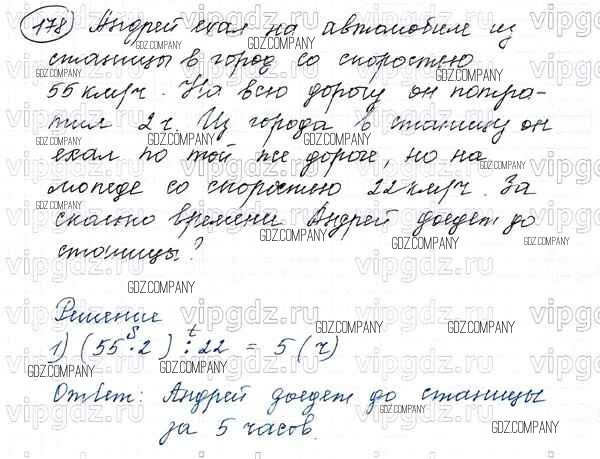 178) Андрей ехал на автомобиле из
станицы в город со скоростью
55 км/ч. На всю дорогу он потра-
тил 2 ч. Из города в станицу он
ехал по той же дороге, но на
мопеде со скоростью 22 км/ч. За
сколько времени Андрей доедет до
станицы?
Решение
S t
1) (55 · 2) : 22 = 5 (ч)
Ответ: Андрей доедет до станицы
за 5 часов.